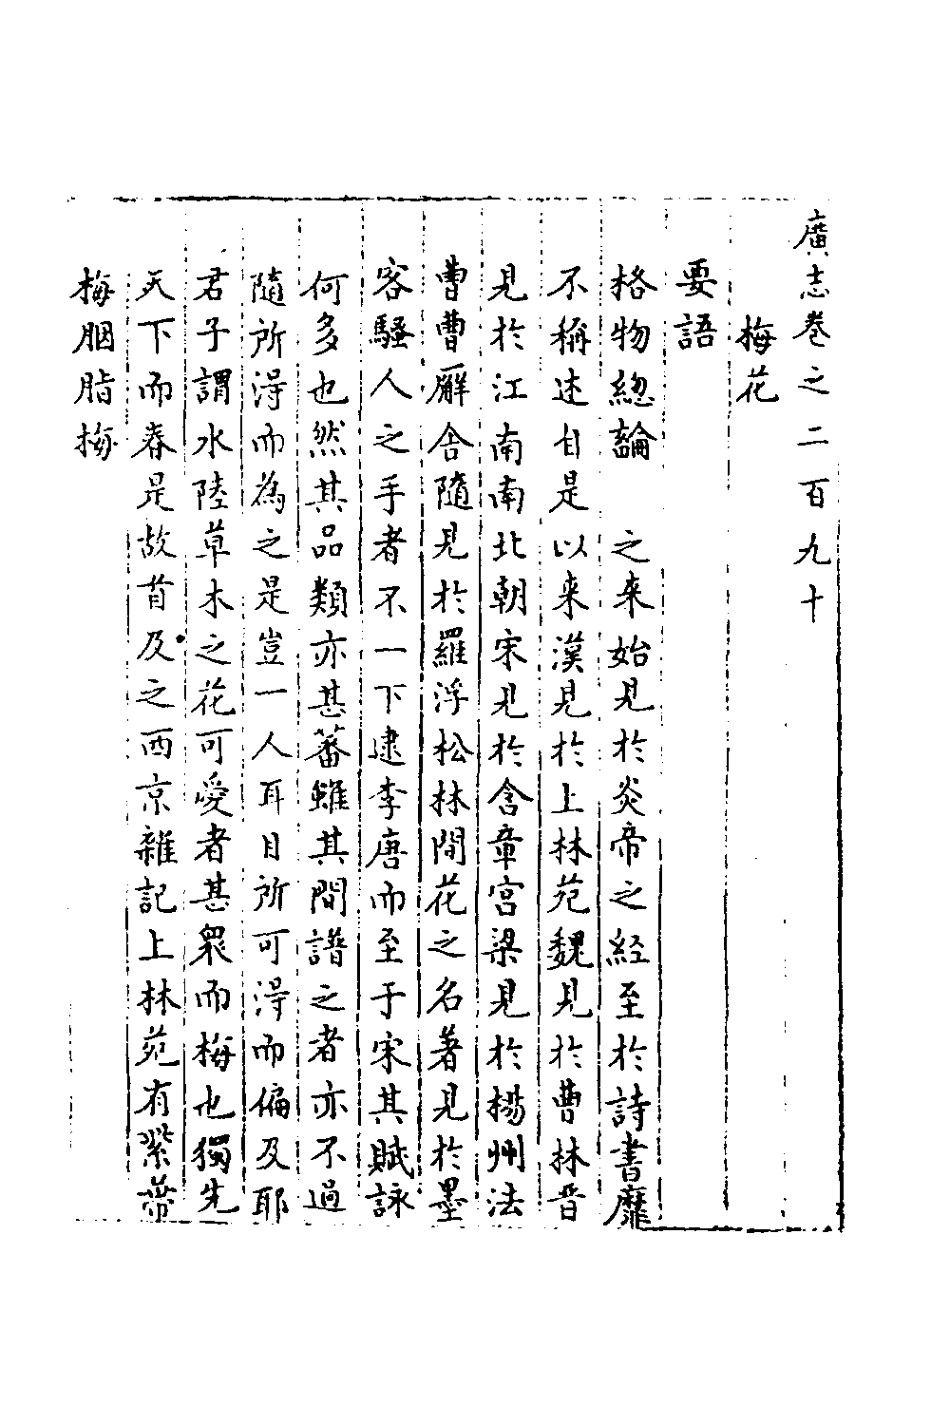 廣志卷之二百九十
梅花
要語
格物緫論　之来始見於炎帝之経至於詩書靡
不稱述自是以来漢見於上林苑魏見於曹林晋
見於江南南北朝宋見於含章宮梁見於楊州法
曹曹廨舍隨見於羅浮松林間花之名著見於墨
客騷人之手者不一下逮李唐而至于宋其賦詠
何多也然其品類亦甚蕃雖其間譜之者亦不過
隨所淂而為之是豈一人耳目所可淂而偏及耶
君子謂水陸草木之花可愛者甚衆而梅也獨先
天下而春是故首及之西京雜記上林苑有紫蒂
梅胭脂梅